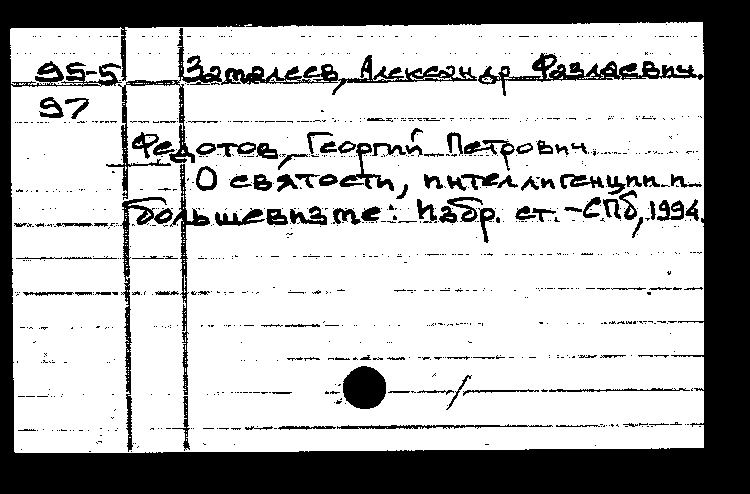 95-5 Заталеев, Александр Фазлаевич.
97
Федотов, Георгий Петрович.
О святости, интеллигенции и
большевизме: Избр. ст. - СПб, 1994.